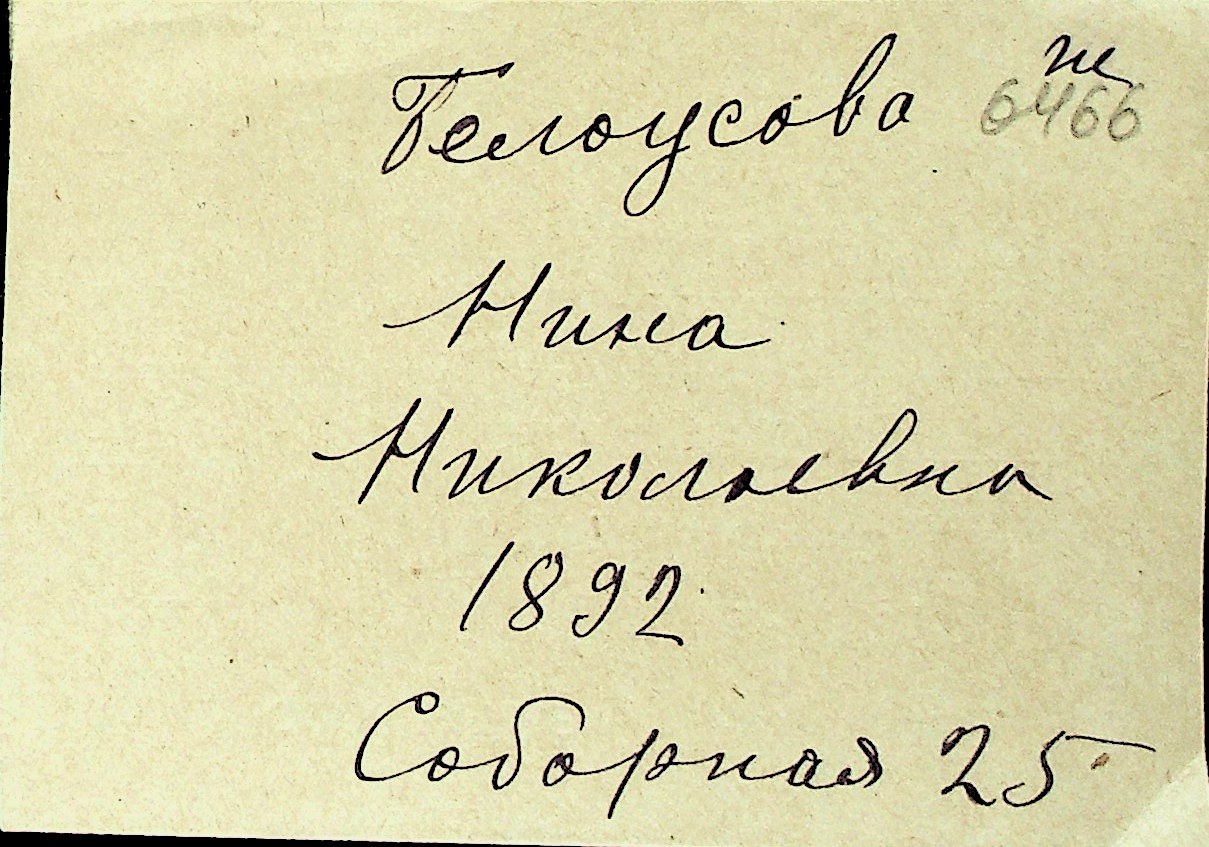 Белоусова
6466
Нина
Николаевна
1892
Соборная 25